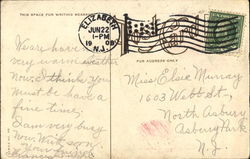 THIS SPACE FOR WRITING MESSAGES
ELIZABETH
JUN 22
1-PM
1908
N.J.
FOR ADDRESS ONLY
We are have
very warm weather
now. I think you
must be have a
fine time,
I am very busy
now. With
Your
Miss Elsie Murray
1603 Webb St.,
North Asbury
Asbury Park
N.J.